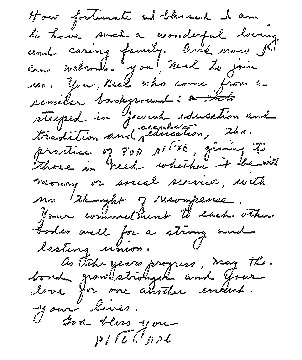 How fortunate and blessed I am
to have such a wonderful loving
and caring family. And now
can welcome you, Neal to join
us. You, both who come from a
similar background: a
steeped in Jewish education and
tradition and secular education, the
practice of חסד, giving to
those in need whether it be with
money or social service, with
no thought of recompense.
Your commitment to each other
bodes well for a strong and
lasting union.
As the years progress, may the
bond grow stronger and your
love for one another enrich
your lives.
God bless you